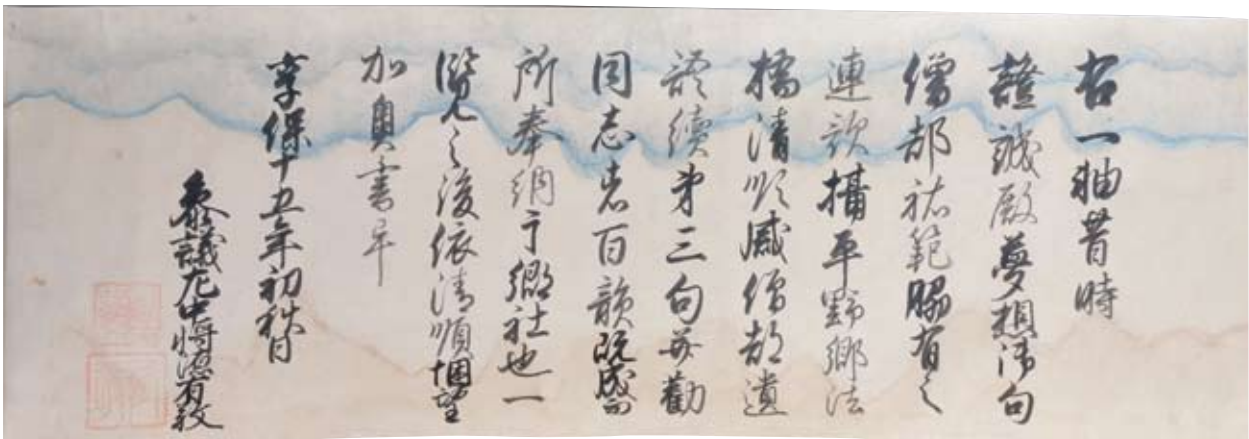 右一軸昔時
證誠殿夢想御句
僧都祐範脇有之
連歌攝平野郷法
橋清順感僧都遺
續第三句并勸
同志者百韻既成而
所奉納于郷社也一
覧之後依清順悃望
加奥書畢
享保十五年初秋日
參議左中将源有敬